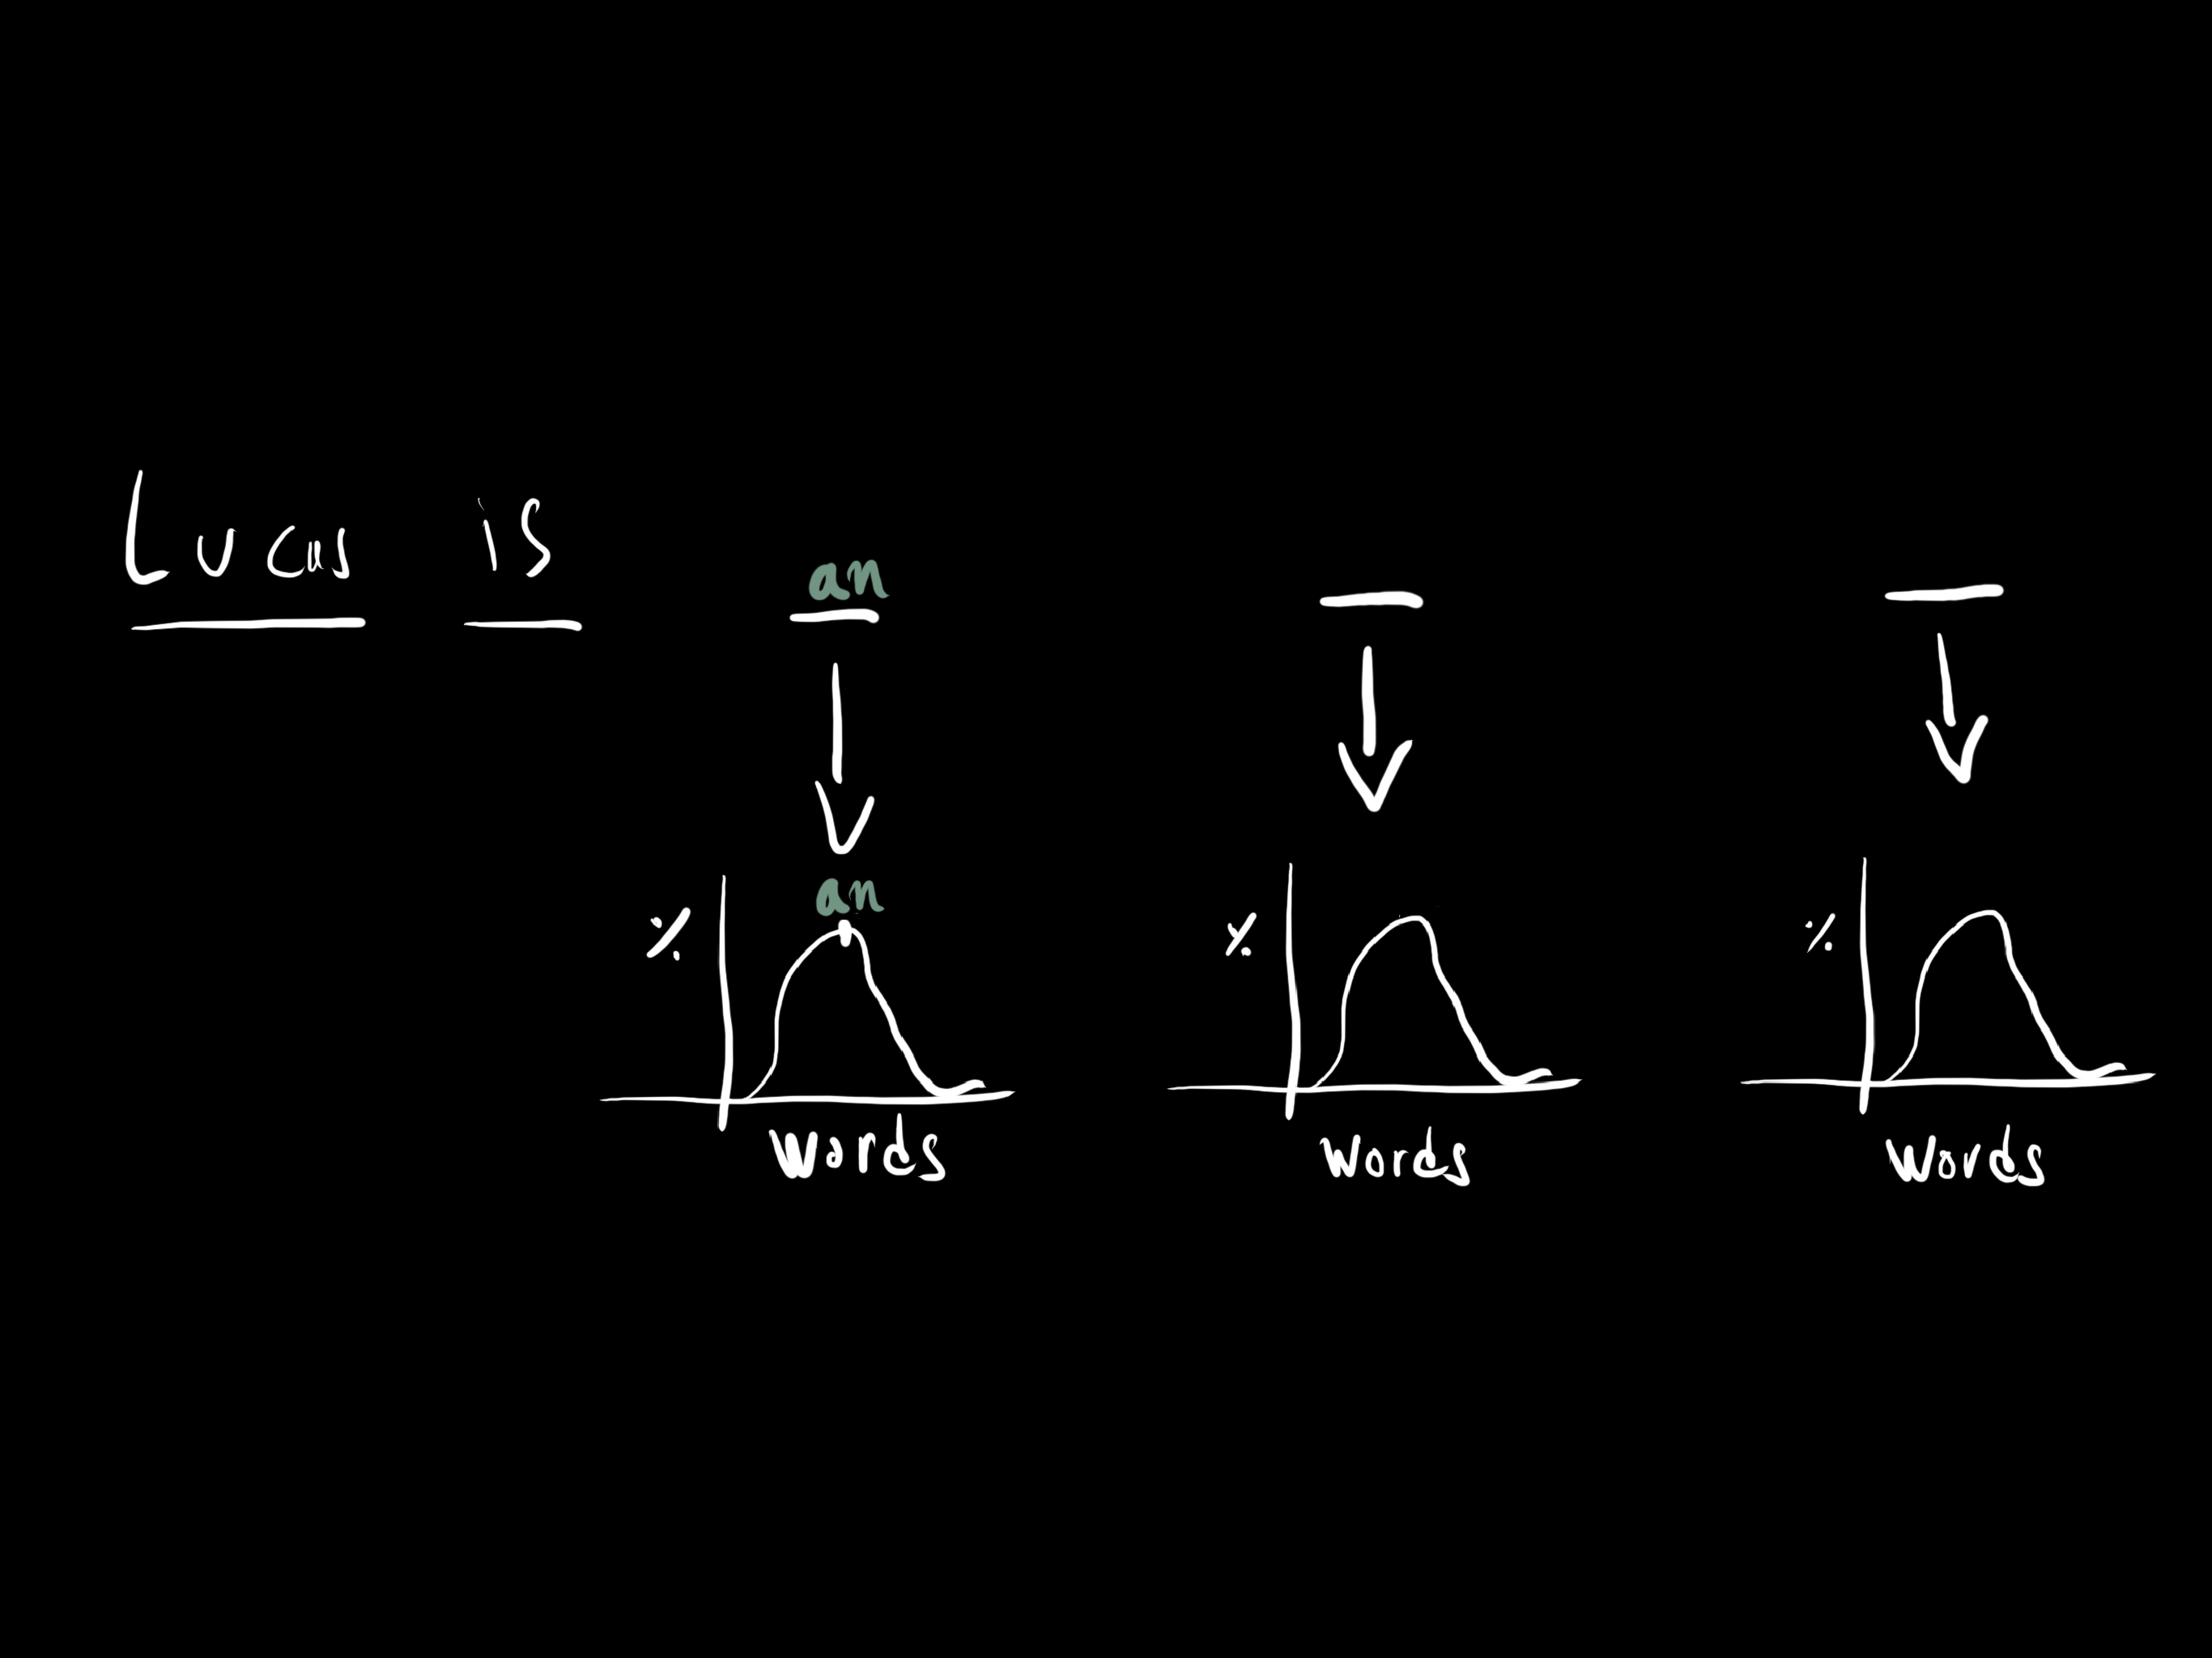 Lucas is an
an
% % %
Words Words Words